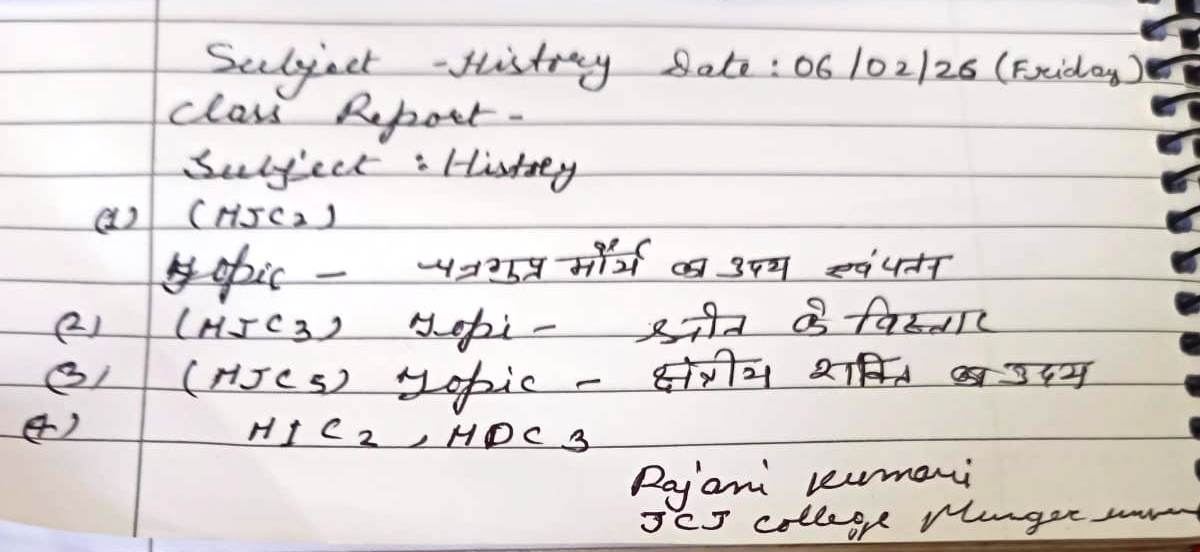 Subject - Histroy Date : 06/02/26 (Friday)
Class Report -
Subject : Histrey
(1) (MJC2)
Topic - चन्द्रगुप्त मौर्य का उदय एवं पतन
(2) (MJC3) Topi - स्त्रोत के विस्तार
(3) (MJC5) Topic - क्षेत्रीय शक्ति का उदय
(4) MIC2, MDC3
Rajani Kumari
JCJ College Munger